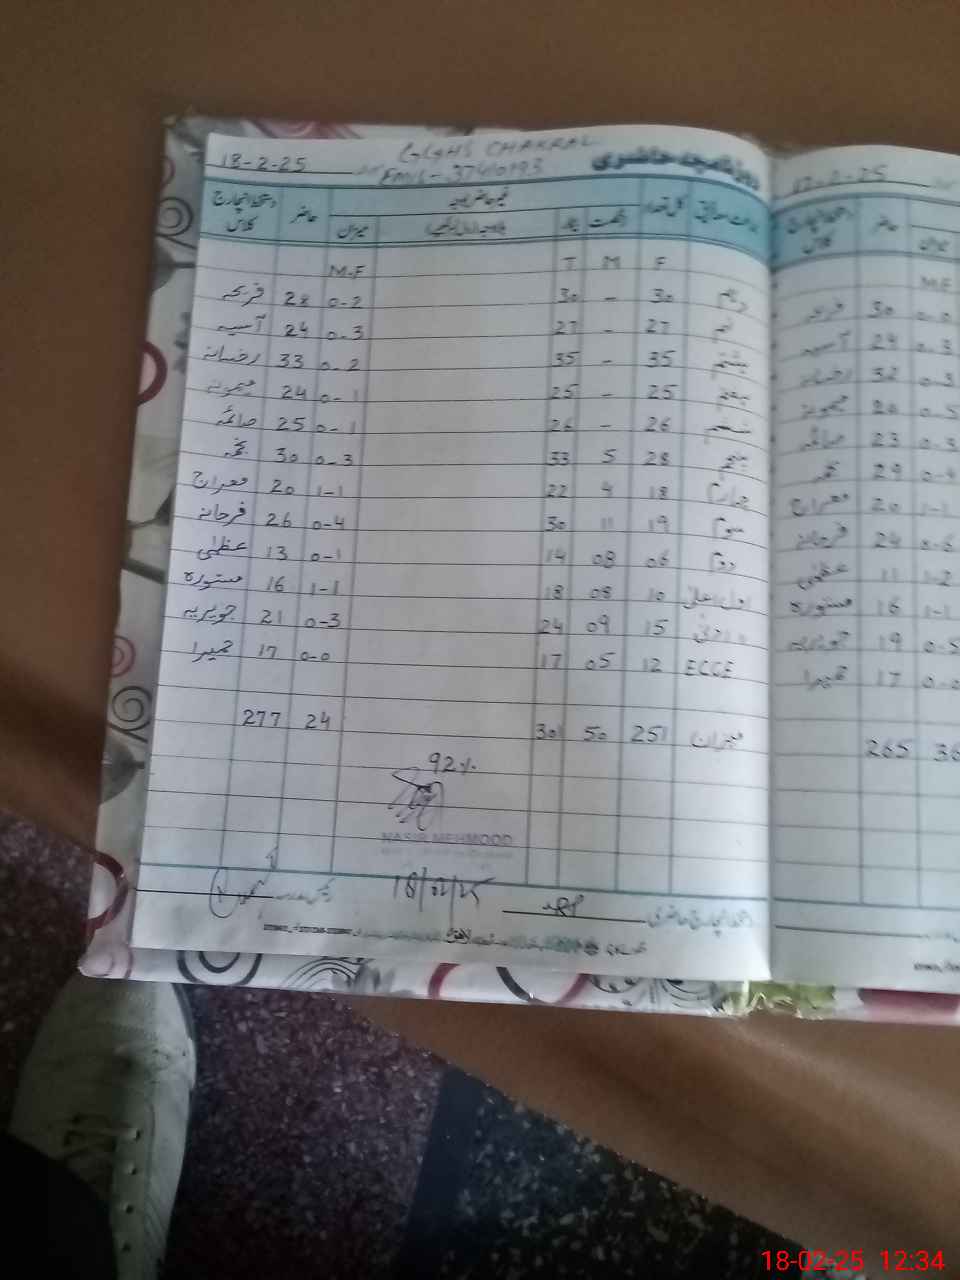 GGHS CHAKRAL
EMIS- 37410193
روزنامچہ حاضری
18-2-25
دستخط انچارج کلاس حاضر غیر حاضر میزان کل تعداد
M-F T M F
فریحہ 28 0-2 30 - 30 دہم
آسیہ 24 0-3 27 - 27 نہم
رخسانہ 33 0-2 35 - 35 ہشتم
میمونہ 24 0-1 25 - 25 ہفتم
صائمہ 25 0-1 26 - 26 ششم
نجمہ 30 0-3 33 5 28 پنجم
معراج 20 1-1 22 4 18 چہارم
فرحانہ 26 0-4 30 11 19 سوم
عظمیٰ 13 0-1 14 08 06 دوم
مستورہ 16 1-1 18 08 10 اول اعلیٰ
جویریہ 21 0-3 24 09 15 ادنیٰ
حمیرا 17 0-0 17 05 12 ECCE
277 24 301 50 251 میزان
92%
NASIR MEHMOOD
18/02/25
دستخط انچارج حاضری
17-2-25
دستخط انچارج کلاس حاضر میزان
M.F
فریحہ 30 0-0
آسیہ 24 0-3
رخسانہ 32 0-3
میمونہ 20 0-5
صائمہ 23 0-3
نجمہ 29 0-4
معراج 20 1-1
فرحانہ 24 0-6
عظمیٰ 11 1-2
مستورہ 16 1-1
جویریہ 19 0-5
حمیرا 17 0-0
265 36
18-02-25 12:34